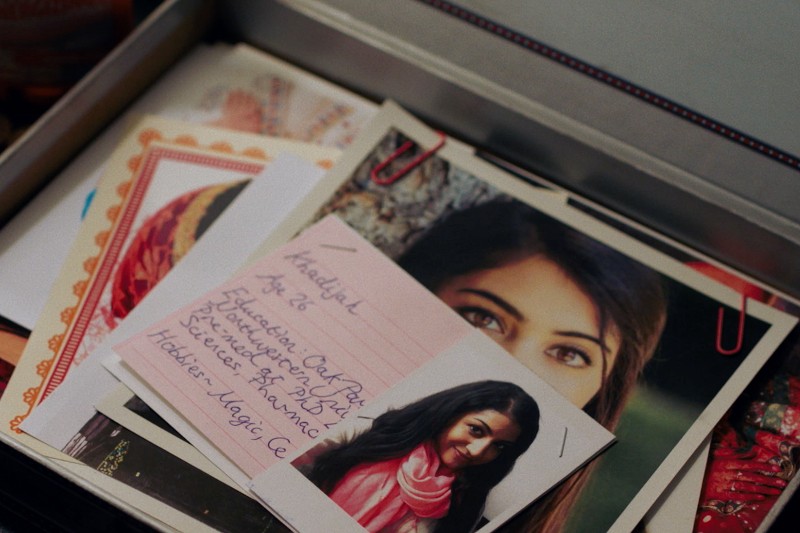 Khadijah
Age 26
Education: Oak Par
Northwestern Uni
Pre-med at PhD
Sciences. Pharmac
Hobbies~ Magic, Ce